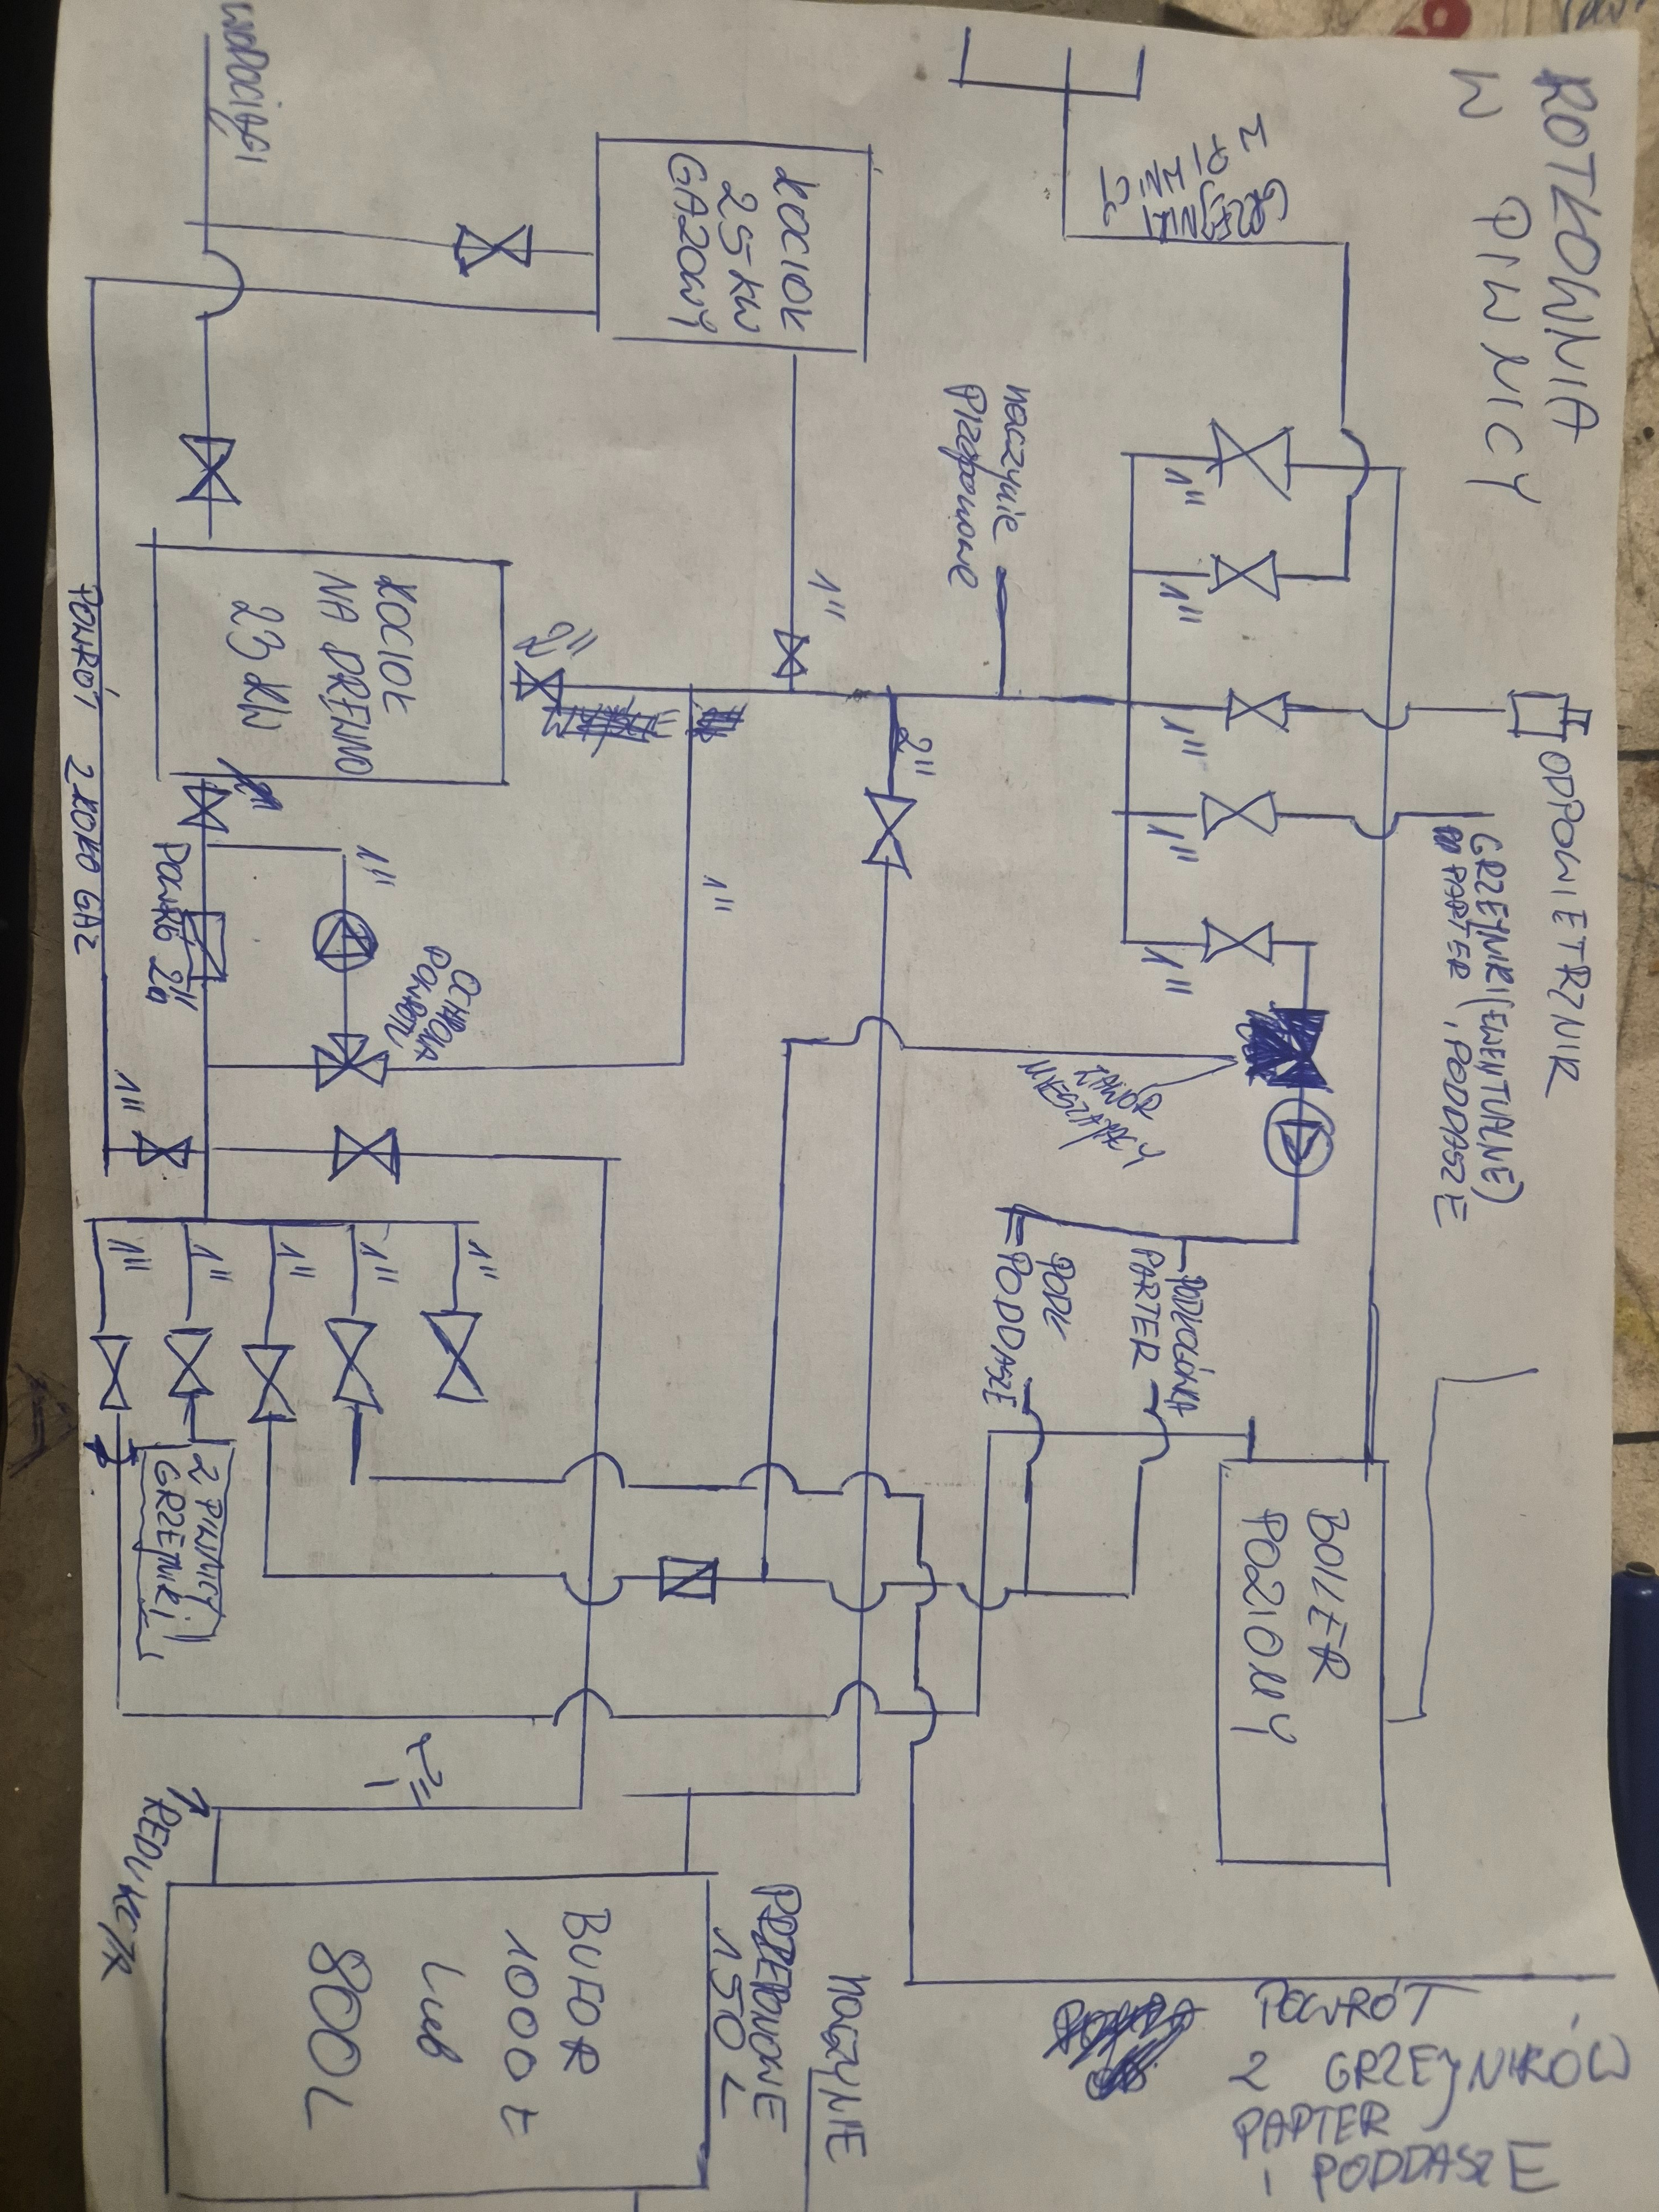 KOTŁOWNIA
W PIWNICY
ODPOWIETRZNIK
GRZEJNIKI (EWENTUALNE)
PARTER i PODDASZE
GRZEJ
1"
1"
1"
1"
1"
naczynie
przeponowe
ZAWÓR
PODŁOGÓWKA
PARTER
PODŁ
PODDASZE
BOILER
POZIOMY
KOCIOŁ
25 KW
GAZOWY
1"
2"
2"
1"
WODOCIĄGI
KOCIOŁ
NA DREWNO
23 KW
1"
OCHRONA
POWROTU
POWRÓT 2"
POWRÓT Z KOTŁO GAZ
1"
1"
1"
1"
1"
1"
Z PIWNICY
GRZEJNIKI
REDUKCJA
NACZYNIE
PRZEPONOWE
150 L
BUFOR
1000 L
Lub
800L
POWRÓT
Z GRZEJNIKÓW
PARTER
i PODDASZE